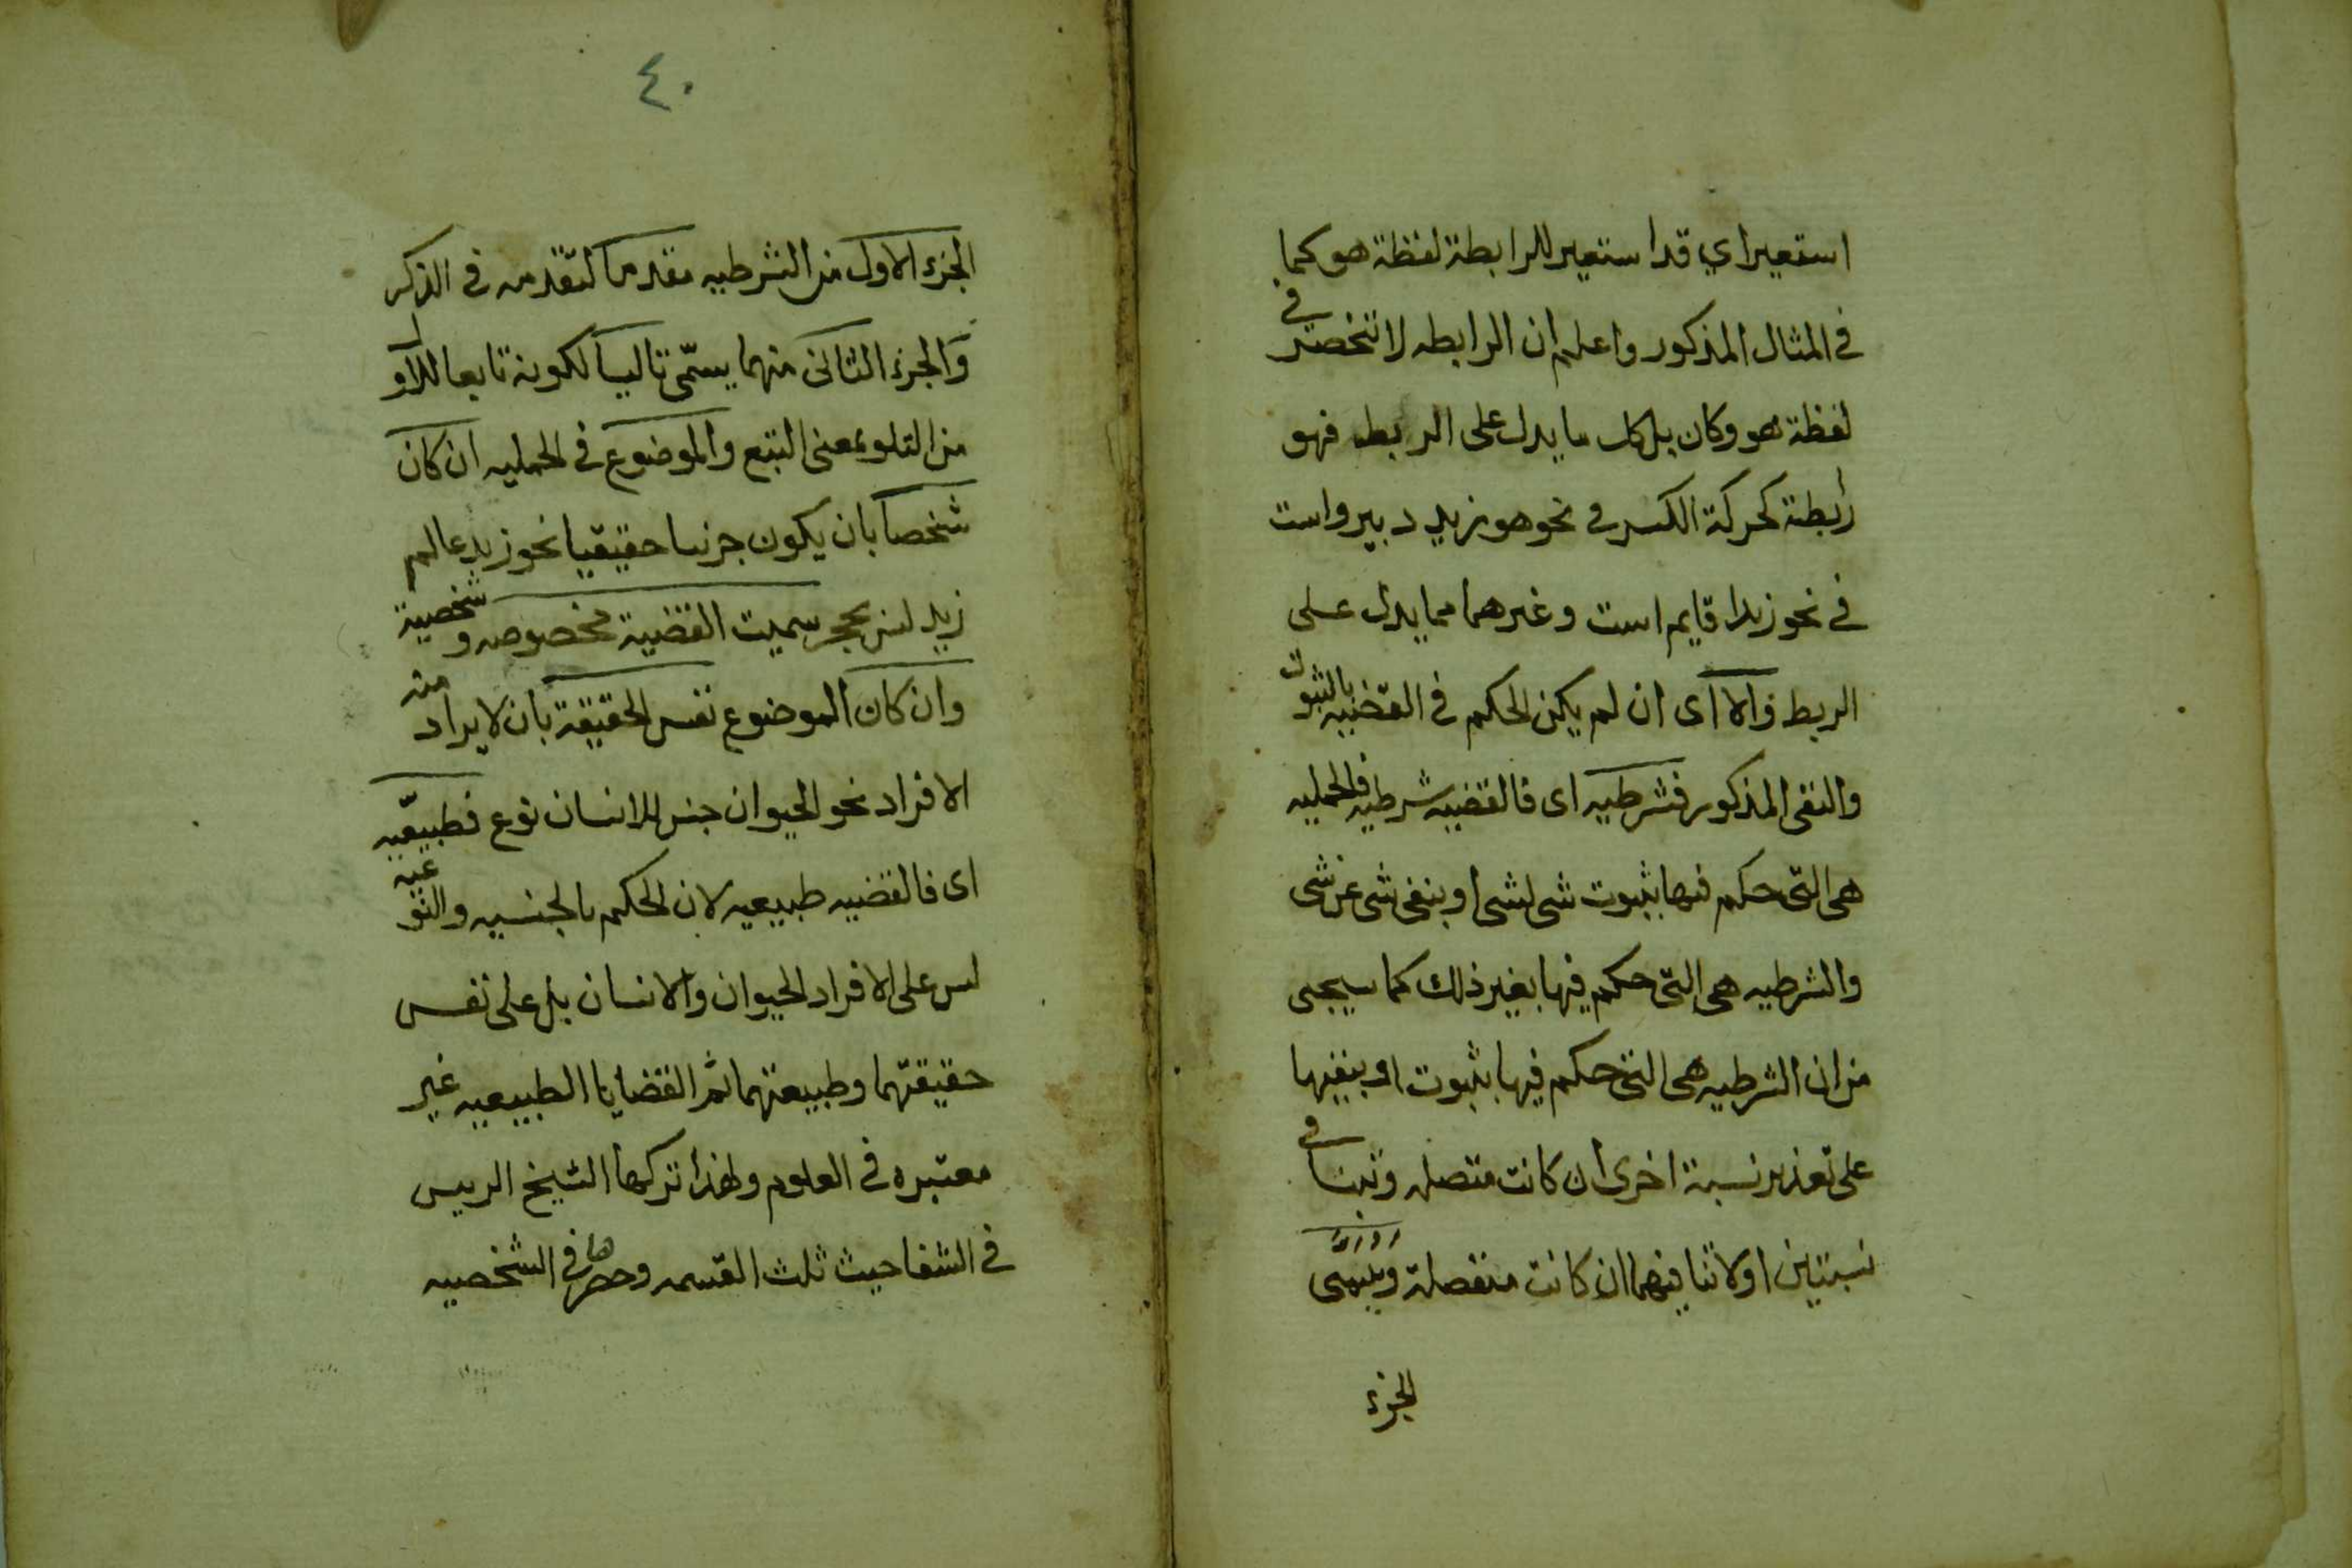 استعير اي قد استعير للرابطة لفظة هو كما
في المثال المذكور واعلم ان الرابطه لا تنحصر في
لفظة هو وكان بل كل ما يدل على الربط فهو
رابطة كحركة الكسر في نحو هو زيد دبير واست
في نحو زيدا قايم است وغيرهما مما يدل على
الربط والا اى ان لم يكن الحكم في القضيه بالثبوت
والنفى المذكور فشرطيه اى فالقضيه شرطيه فالحمليه
هى التى حكم فيها بثبوت شى لشى او بنفى شى عن شى
والشرطيه هى التى حكم فيها بغير ذلك كما سيجى
من ان الشرطيه هى التى حكم فيها بثبوت او بنفيها
على تقدير نسبة اخرى ان كانت متصله وتنافى
نسبتين او لا تنافيهما ان كانت منفصلة ويسمى
الجزء
٤٠
الجزء الاول من الشرطيه مقدما لتقدمه في الذكر
والجزء الثانى منهما يسمّى تاليا لكونه تابعا للاول
من التلو بمعنى التبع والموضوع في الحمليه ان كان
شخصا بان يكون جزئيا حقيقيا نحو زيد عالم
زيد ليس بحجر سميت القضية مخصوصه وشخصية
وان كان الموضوع نفس الحقيقة بان لا يراد منه
الافراد نحو الحيوان جنس الانسان نوع فطبيعّيه
اى فالقضيه طبيعيه لان الحكم بالجنسيه والنوعيه
ليس على الافراد الحيوان والانسان بل على نفس
حقيقتهما وطبيعتهما ثم القضايا الطبيعيه غير
معتبره في العلوم ولهذا تركها الشيخ الرييس
في الشفا حيث ثلث القسمه وحصرها في الشخصيه